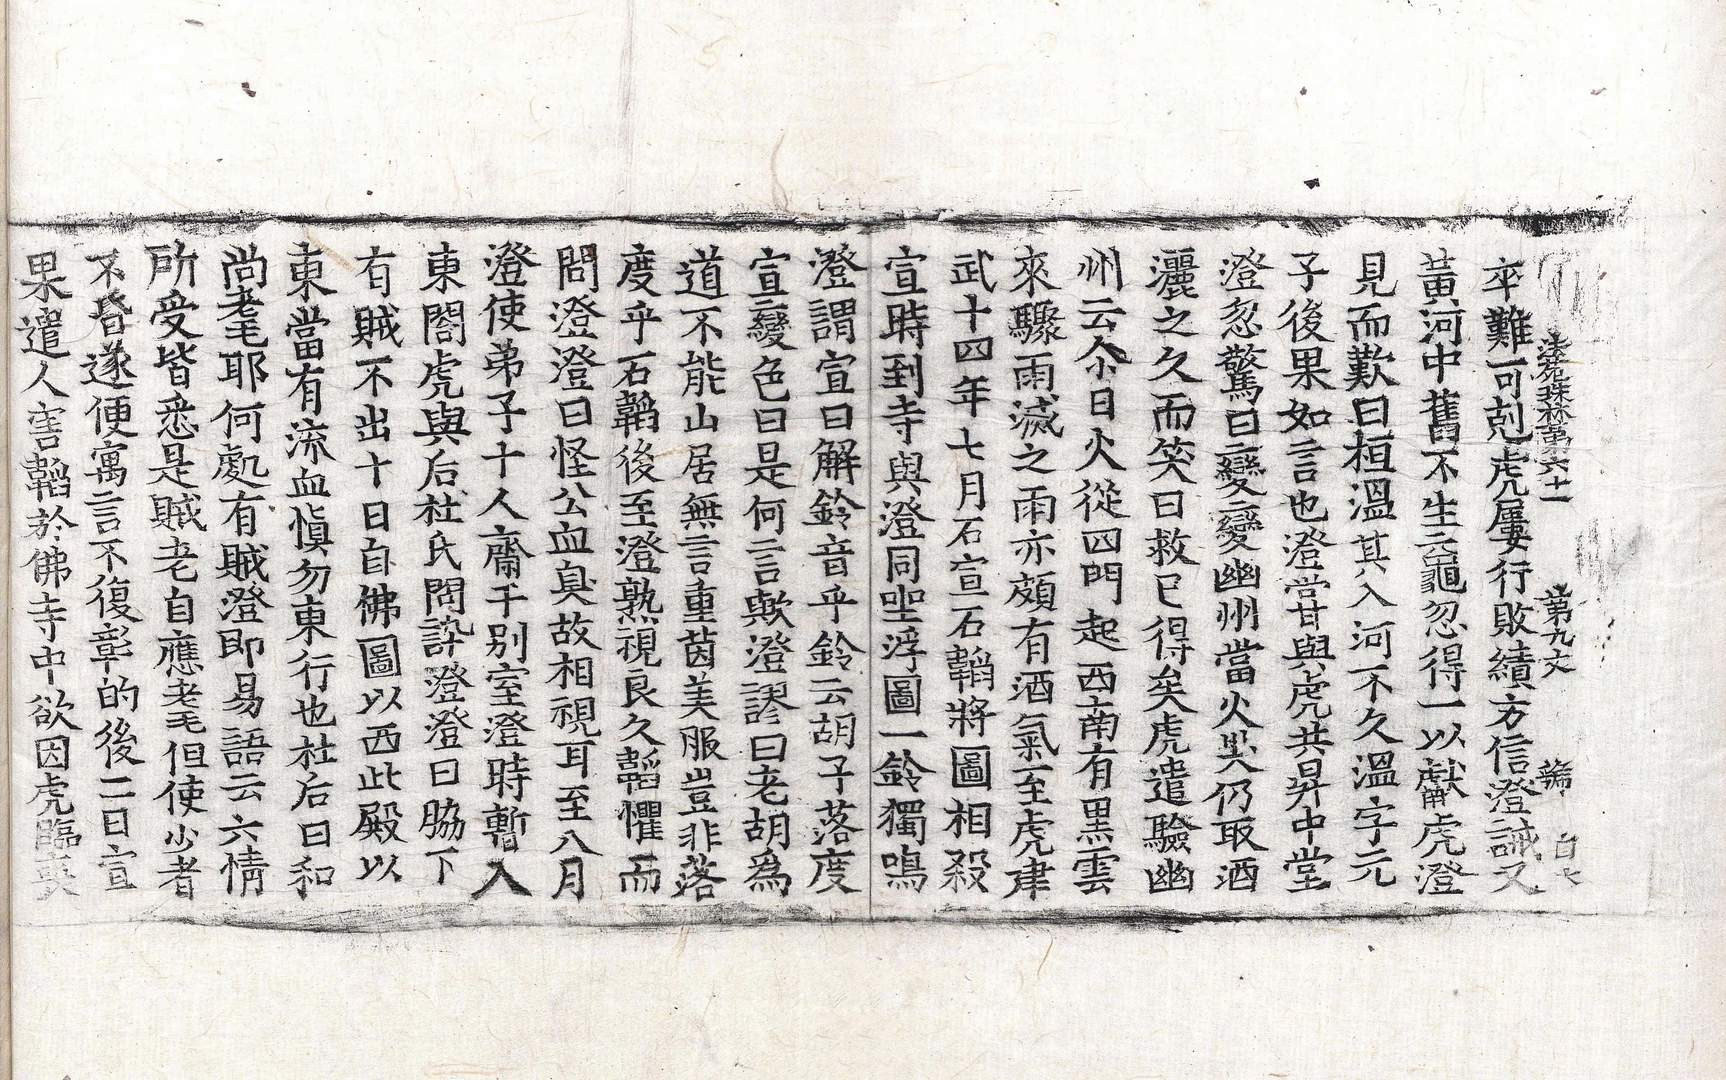 法苑珠林第六十一 第九丈 號 白
卒難可剋虎屢行敗績方信澄誡又
黃河中舊不生黿忽得一以獻虎澄
見而歎曰桓溫其入河不久溫字元
子後果如言也澄甞與虎共昇中堂
澄忽驚曰變變幽州當火災仍取酒
灑之久而笑曰救已得矣虎遣驗幽
州云尒日火從四門起西南有黑雲
來驟雨滅之雨亦頗有酒氣至虎建
武十四年七月石宣石韜將圖相殺
宣時到寺與澄同坐浮圖一鈴獨鳴
澄謂宣曰解鈴音乎鈴云胡子落度
宣變色曰是何言歟澄謬曰老胡爲
道不能山居無言重茵美服豈非落
度乎石韜後至澄熟視良久韜懼而
問澄澄曰怪公血臭故相視耳至八月
澄使弟子十人齋于别室澄時暫入
東閤虎與后杜氏問訊澄澄曰脇下
有賊不出十日自佛圖以西此殿以
東當有流血愼勿東行也杜后曰和
尚耄耶何處有賊澄即易語云六情
所受皆悉是賊老自應耄但使少者
不昏遂便寓言不復彰的後二日宣
果遣人害韜於佛寺中欲因虎臨喪